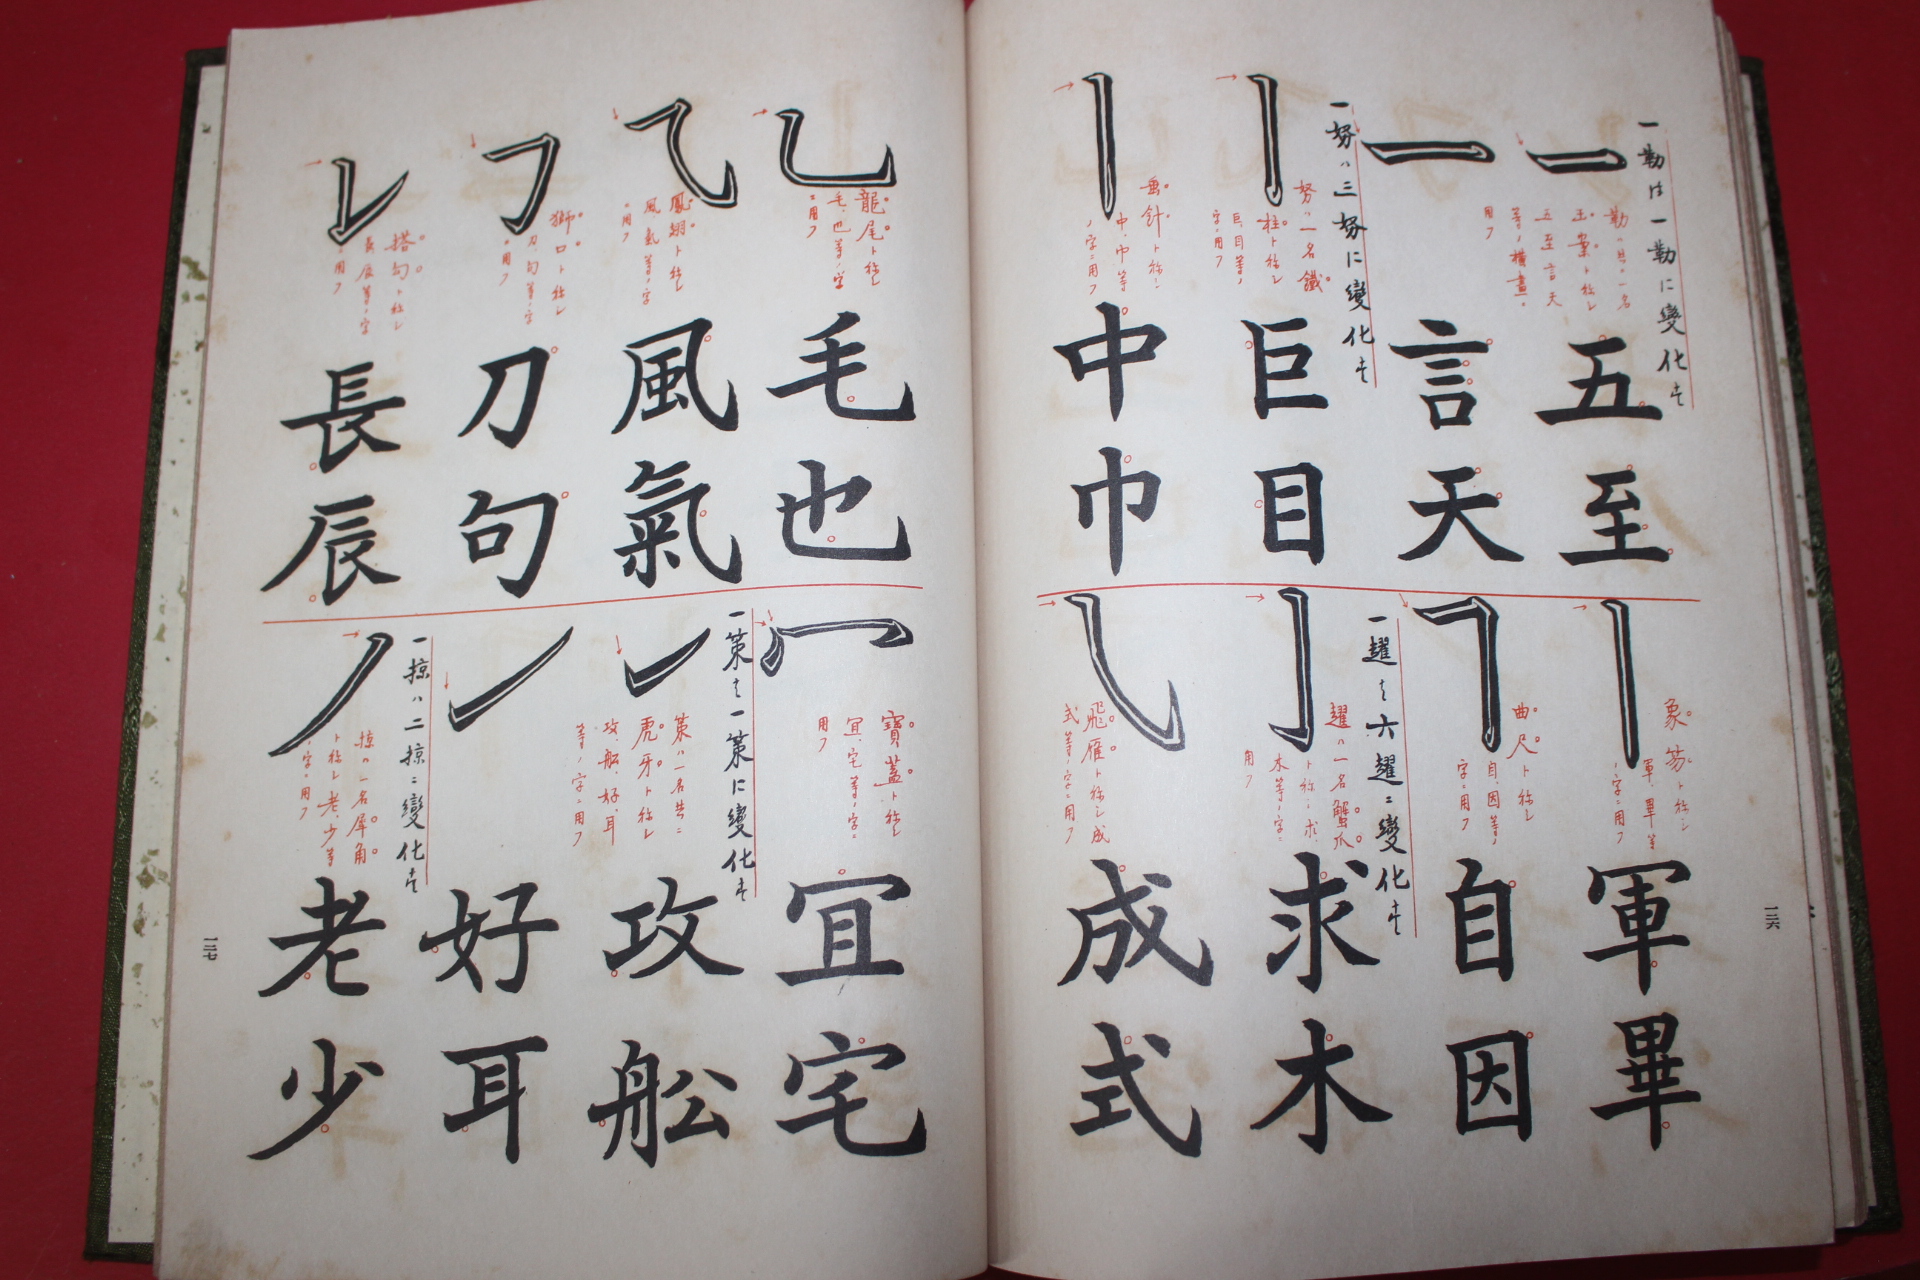 一勒は一勒に變化す
勒ハ其ノ一名
玉案ト称シ
五至言天
等ノ横畫。
用フ
五至
言天
一努ハ三努に變化す
努ハ一名鐵。
柱ト称シ
巨、目等ノ
字ニ用フ
巨目
垂針ト称シ
中、巾、等
ノ字ニ用フ
中巾
象笏ト称シ
軍、畢等
ノ字ニ用フ
軍畢
曲尺ト称シ
自、因等ノ
字ニ用フ
自因
一趯は六趯ニ變化す
趯ハ一名蟹爪
ト称シ求、
木等ノ字ニ
用フ
求木
飛雁ト称シ成
式等ノ字ニ用フ
成式
一二六
龍尾ト称シ
毛、也等ノ字
ニ用フ
毛也
鳳翅ト称シ
風氣等ノ字
ニ用フ
風氣
獅口ト称シ
刀句等ノ字
ニ用フ
刀句
搭勾ト称シ
長辰等ノ字
ニ用フ
長辰
寶蓋ト称シ
冝、宅等ノ字ニ
用フ
冝宅
一策は一策に變化す
策ハ一名共ニ
虎牙ト称シ
攻、舩、好、耳
等ノ字ニ用フ
攻舩
好耳
一掠ハ二掠ニ變化す
掠ハ一名犀角
ト称シ老、少等
ノ字ニ用フ
老少
一二七